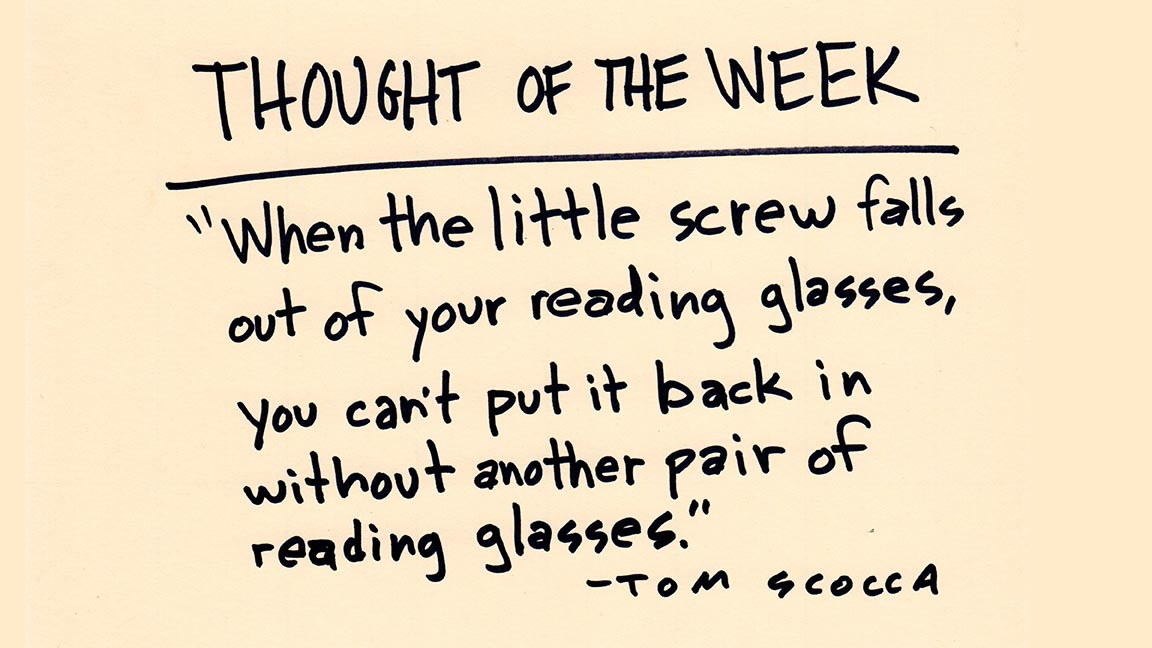 THOUGHT OF THE WEEK
"When the little screw falls
out of your reading glasses,
you can't put it back in
without another pair of
reading glasses."
-TOM SCOCCA